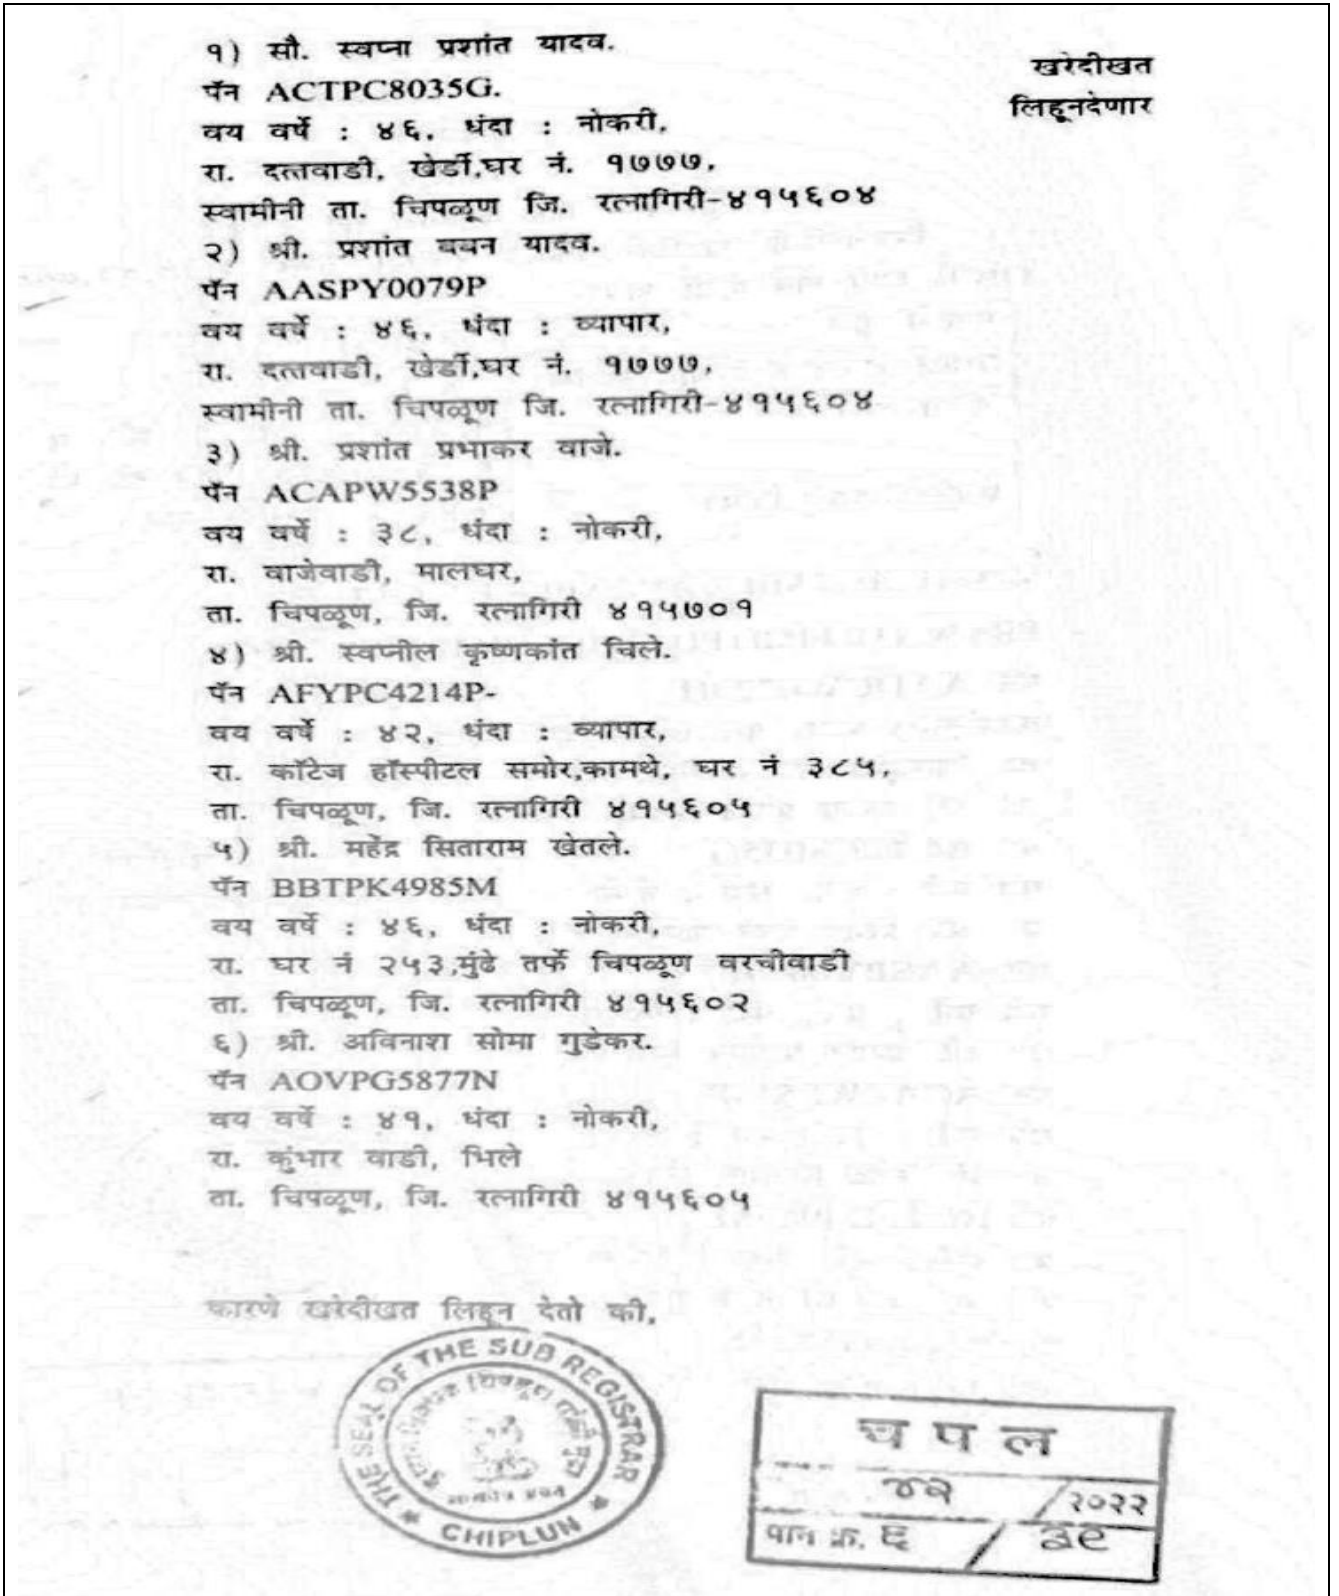 १) सौ. स्वप्ना प्रशांत यादव.
खरेदीखत
पॅन ACTPC8035G.
लिहूनदेणार
वय वर्षे : ४६, धंदा : नोकरी,
रा. दत्तवाडी, खेर्डी,घर नं. १७७७,
स्वामीनी ता. चिपळूण जि. रत्नागिरी-४१५६०४
२) श्री. प्रशांत बबन यादव.
पॅन AASPY0079P
वय वर्षे : ४६, धंदा : व्यापार,
रा. दत्तवाडी, खेर्डी,घर नं. १७७७,
स्वामीनी ता. चिपळूण जि. रत्नागिरी-४१५६०४
३) श्री. प्रशांत प्रभाकर वाजे.
पॅन ACAPW5538P
वय वर्षे : ३८, धंदा : नोकरी,
रा. वाजेवाडी, मालघर,
ता. चिपळूण, जि. रत्नागिरी ४१५७०१
४) श्री. स्वप्नील कृष्णकांत चिले.
पॅन AFYPC4214P-
वय वर्षे : ४२, धंदा : व्यापार,
रा. कॉटेज हॉस्पीटल समोर,कामथे, घर नं ३८५,
ता. चिपळूण, जि. रत्नागिरी ४१५६०५
५) श्री. महेंद्र सिताराम खेतले.
पॅन BBTPK4985M
वय वर्षे : ४६, धंदा : नोकरी,
रा. घर नं २५३,मुंढे तर्फे चिपळूण वरचीवाडी
ता. चिपळूण, जि. रत्नागिरी ४१५६०२
६) श्री. अविनाश सोमा गुडेकर.
पॅन AOVPG5877N
वय वर्षे : ४१, धंदा : नोकरी,
रा. कुंभार वाडी, भिले
ता. चिपळूण, जि. रत्नागिरी ४१५६०५
कारणे खरेदीखत लिहून देतो की,
THE SEAL OF THE SUB REGISTRAR
CHIPLUN
च प ल
४२ / २०२२
पान क्र. ६ / ३९